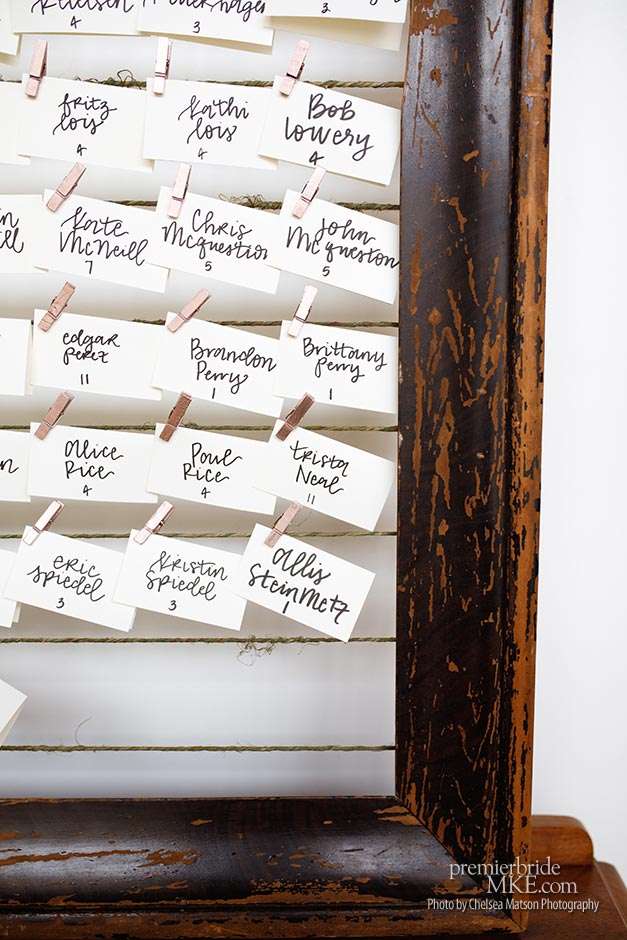 4
3
4
fritz
lois
4
Kathi
lois
4
Bob
Lowery
4
Kate
McNeill
7
Chris
Mcquestion
5
John
Mcqueston
5
edgar
perez
11
Brandon
Perry
1
Brittany
Perry
1
Alice
Rice
4
Paul
Rice
4
trista
Neal
11
eric
Spiedel
3
Kristin
Spiedel
3
Allis
Steinmetz
1
premierbride
MKE.com
Photo by Chelsea Matson Photography